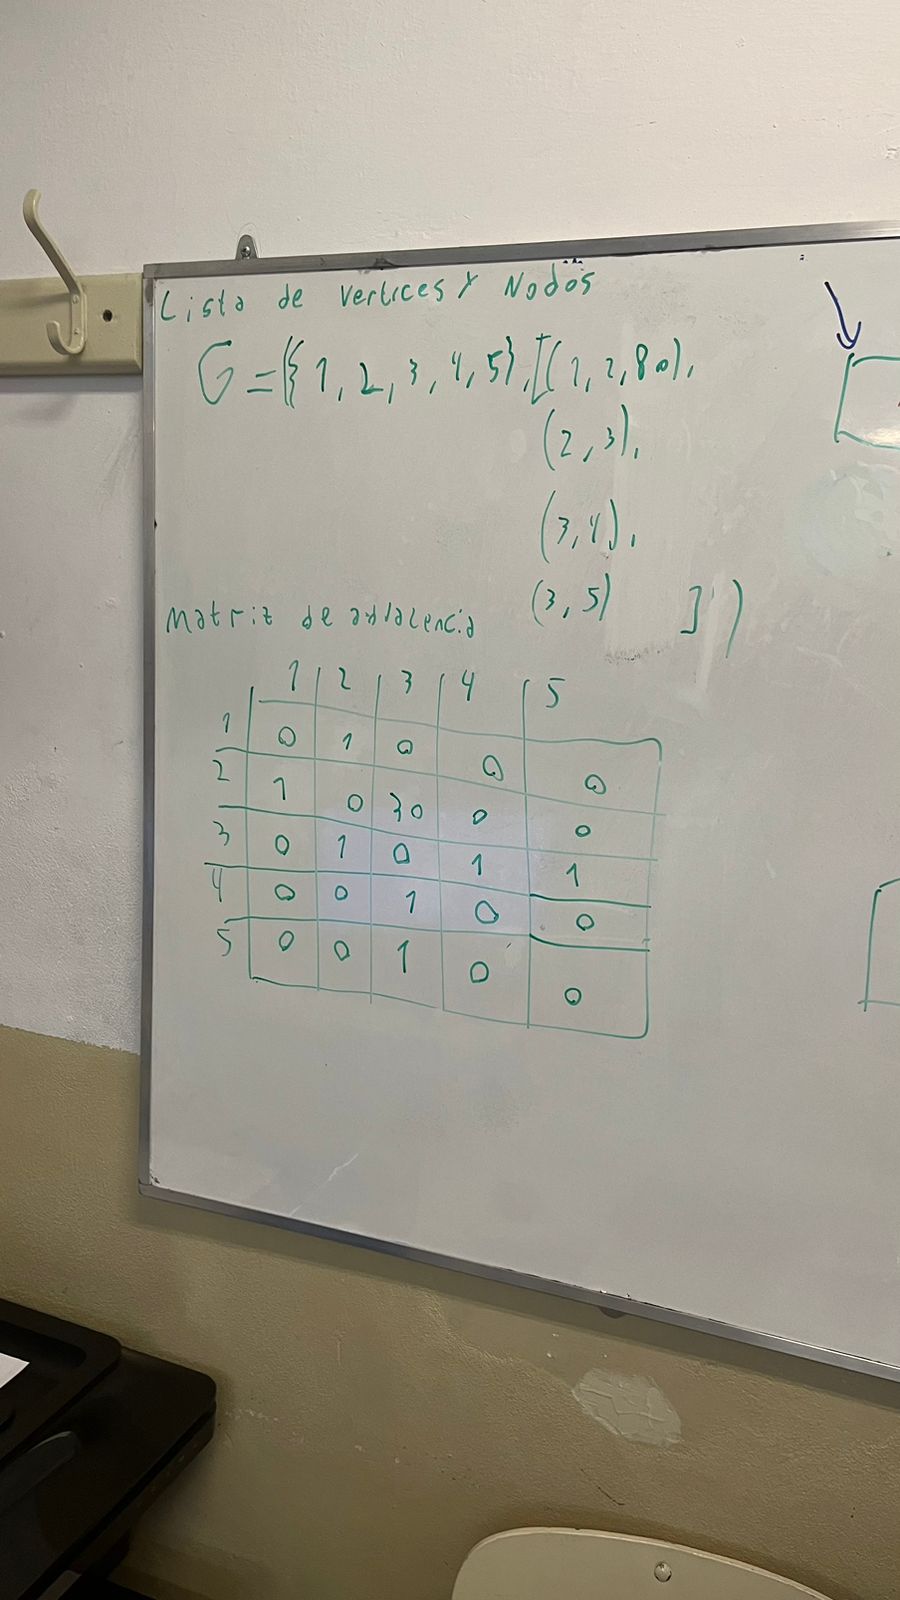 Lista de vertices y Nodos
G=({1,2,3,4,5},[(1,2,80),
(2,3),
(3,4),
(3,5) ])
Matriz de adlacencia
1 2 3 4 5
1 0 1 0 0 0
2 1 0 30 0 0
3 0 1 0 1 1
4 0 0 1 0 0
5 0 0 1 0 0